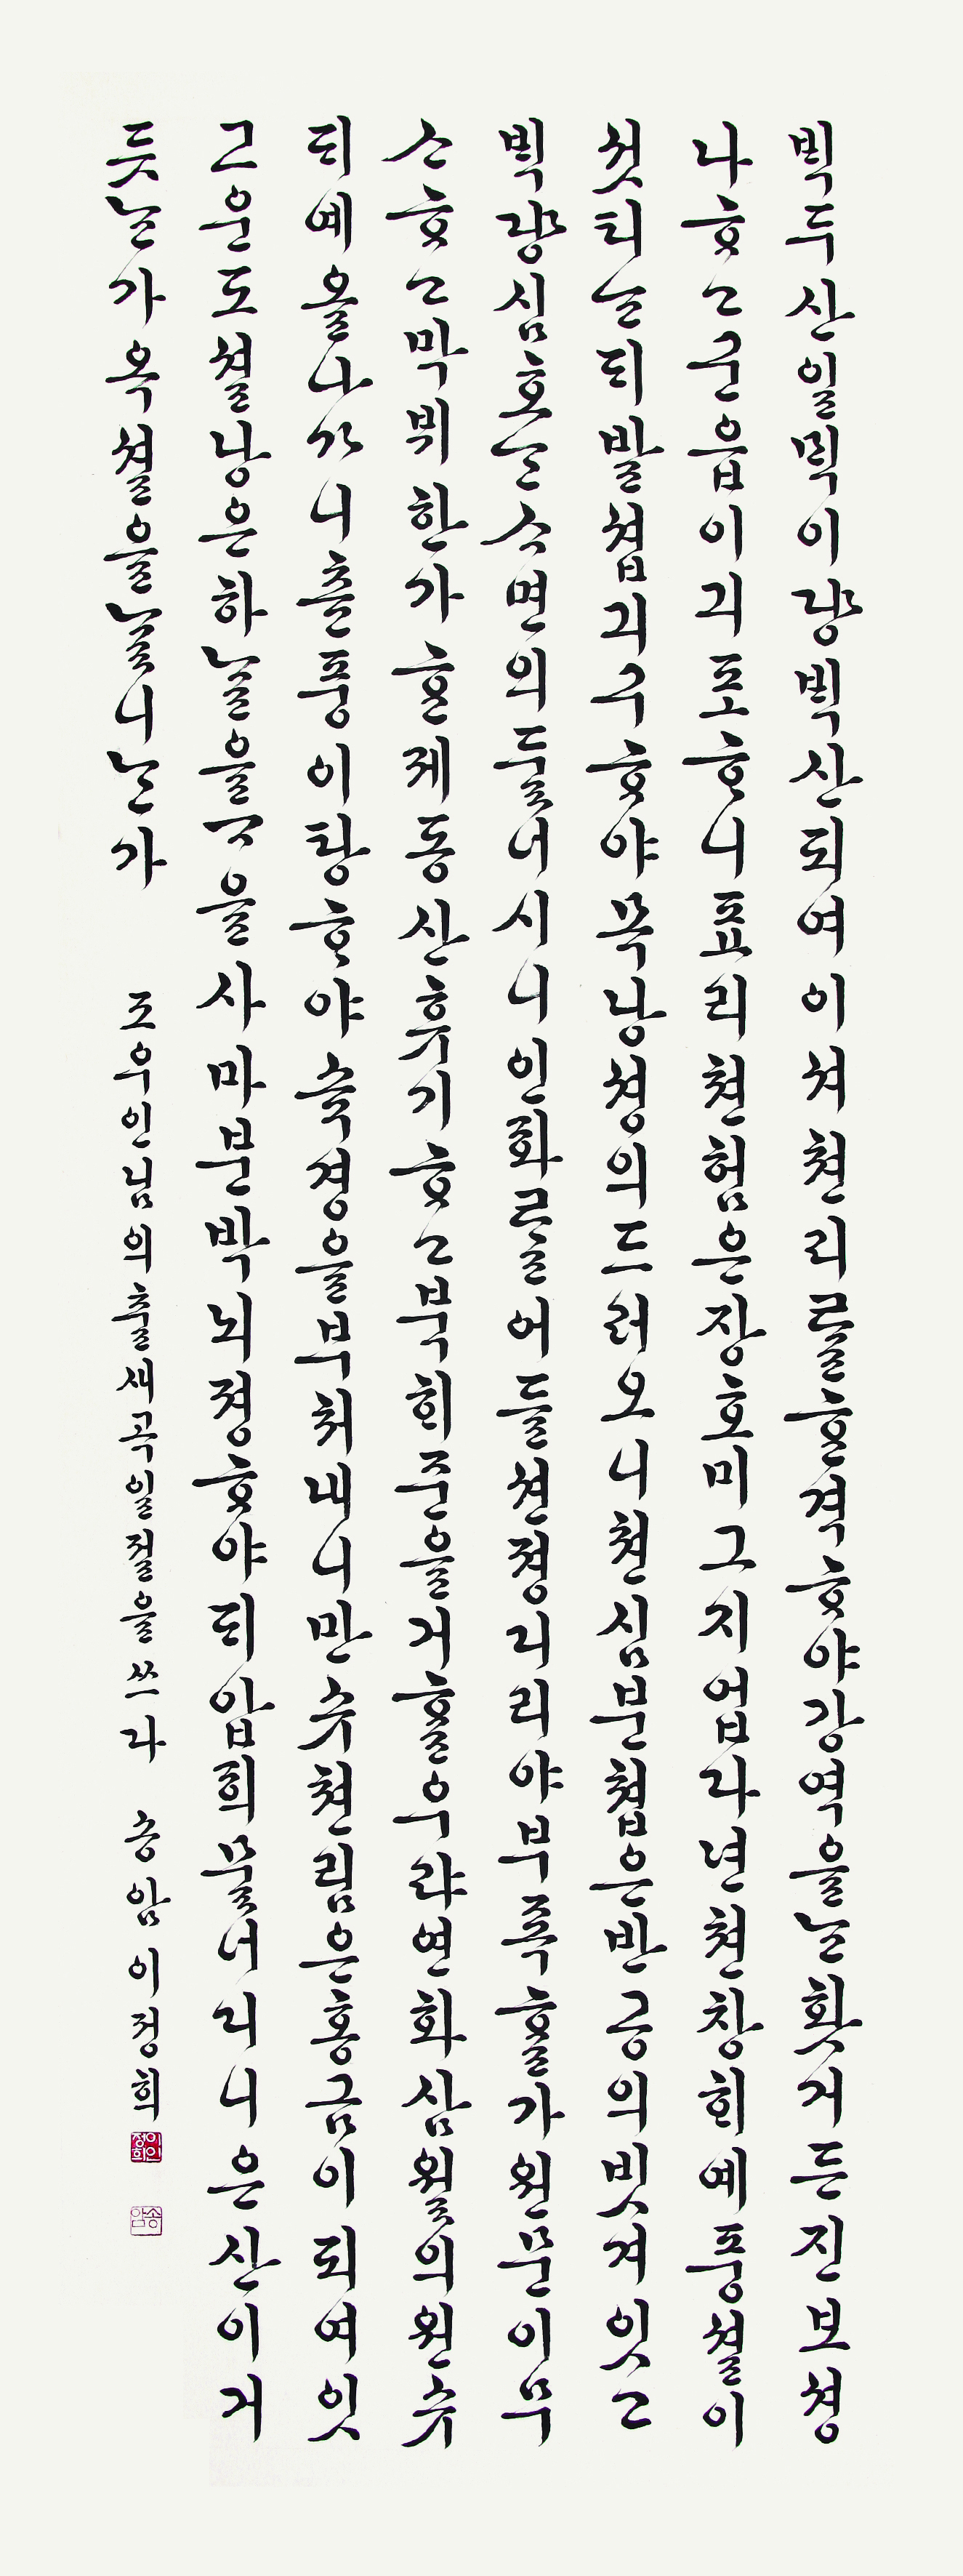 빅두산일믹이량빅산되여이셔쳔리ᄅᆞᆯᄒᆞᆯ격ᄒᆞ야강역을ᄂᆞᆫ횟거든진보셩
나ᄒᆞ고군읍이긔포ᄒᆞ니표리쳔험은장호미그지업다년쳔창ᄒᆡ예풍셜이
섯티ᄂᆞᆫ듸발셥긔구ᄒᆞ야목낭셩의드러오니쳔심분쳡은반공의빗겨잇고
빅량심호ᄂᆞᆫ수면의둘너시니인화ᄅᆞᆯ어들션졍디리야부족ᄒᆞᆯ가원문이무
ᄉᆞᄒᆞ고막뷔한가ᄒᆞᆫ제동산휴기ᄒᆞ고북ᄒᆡ준을거훌우랴연화삼월의원슈
듸예올나가니츌풍이탕ᄒᆞ야슉경을부쳐내니만슈쳔림은홍금이되여잇
고운도셜낭은하ᄂᆞᆯ을ᄀᆞ을사마분박뇌졍ᄒᆞ야듸압희물너디니은산이거
듯ᄂᆞᆫ가옥셜을ᄂᆞᆯ니ᄂᆞᆫ가 조우인님의출새곡일절을쓰다 송암이정희
이정희인
송암